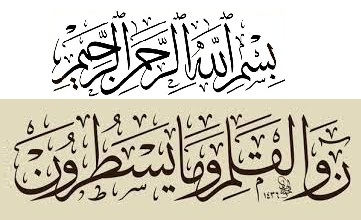 بِسْمِ ٱللَّهِ ٱلرَّحْمَٰنِ ٱلرَّحِيمِ
نٓ وَالْقَلَمِ وَمَا يَسْطُرُونَ